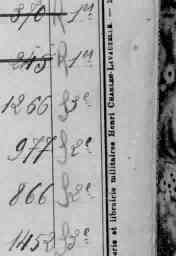 870 R 1er
245 R 1er
1266 S 3e
977 S 2e
866 S 2e
1452 S 3e
erie et librairie militaires Henri CHARLES-LAVAUZELLE. —